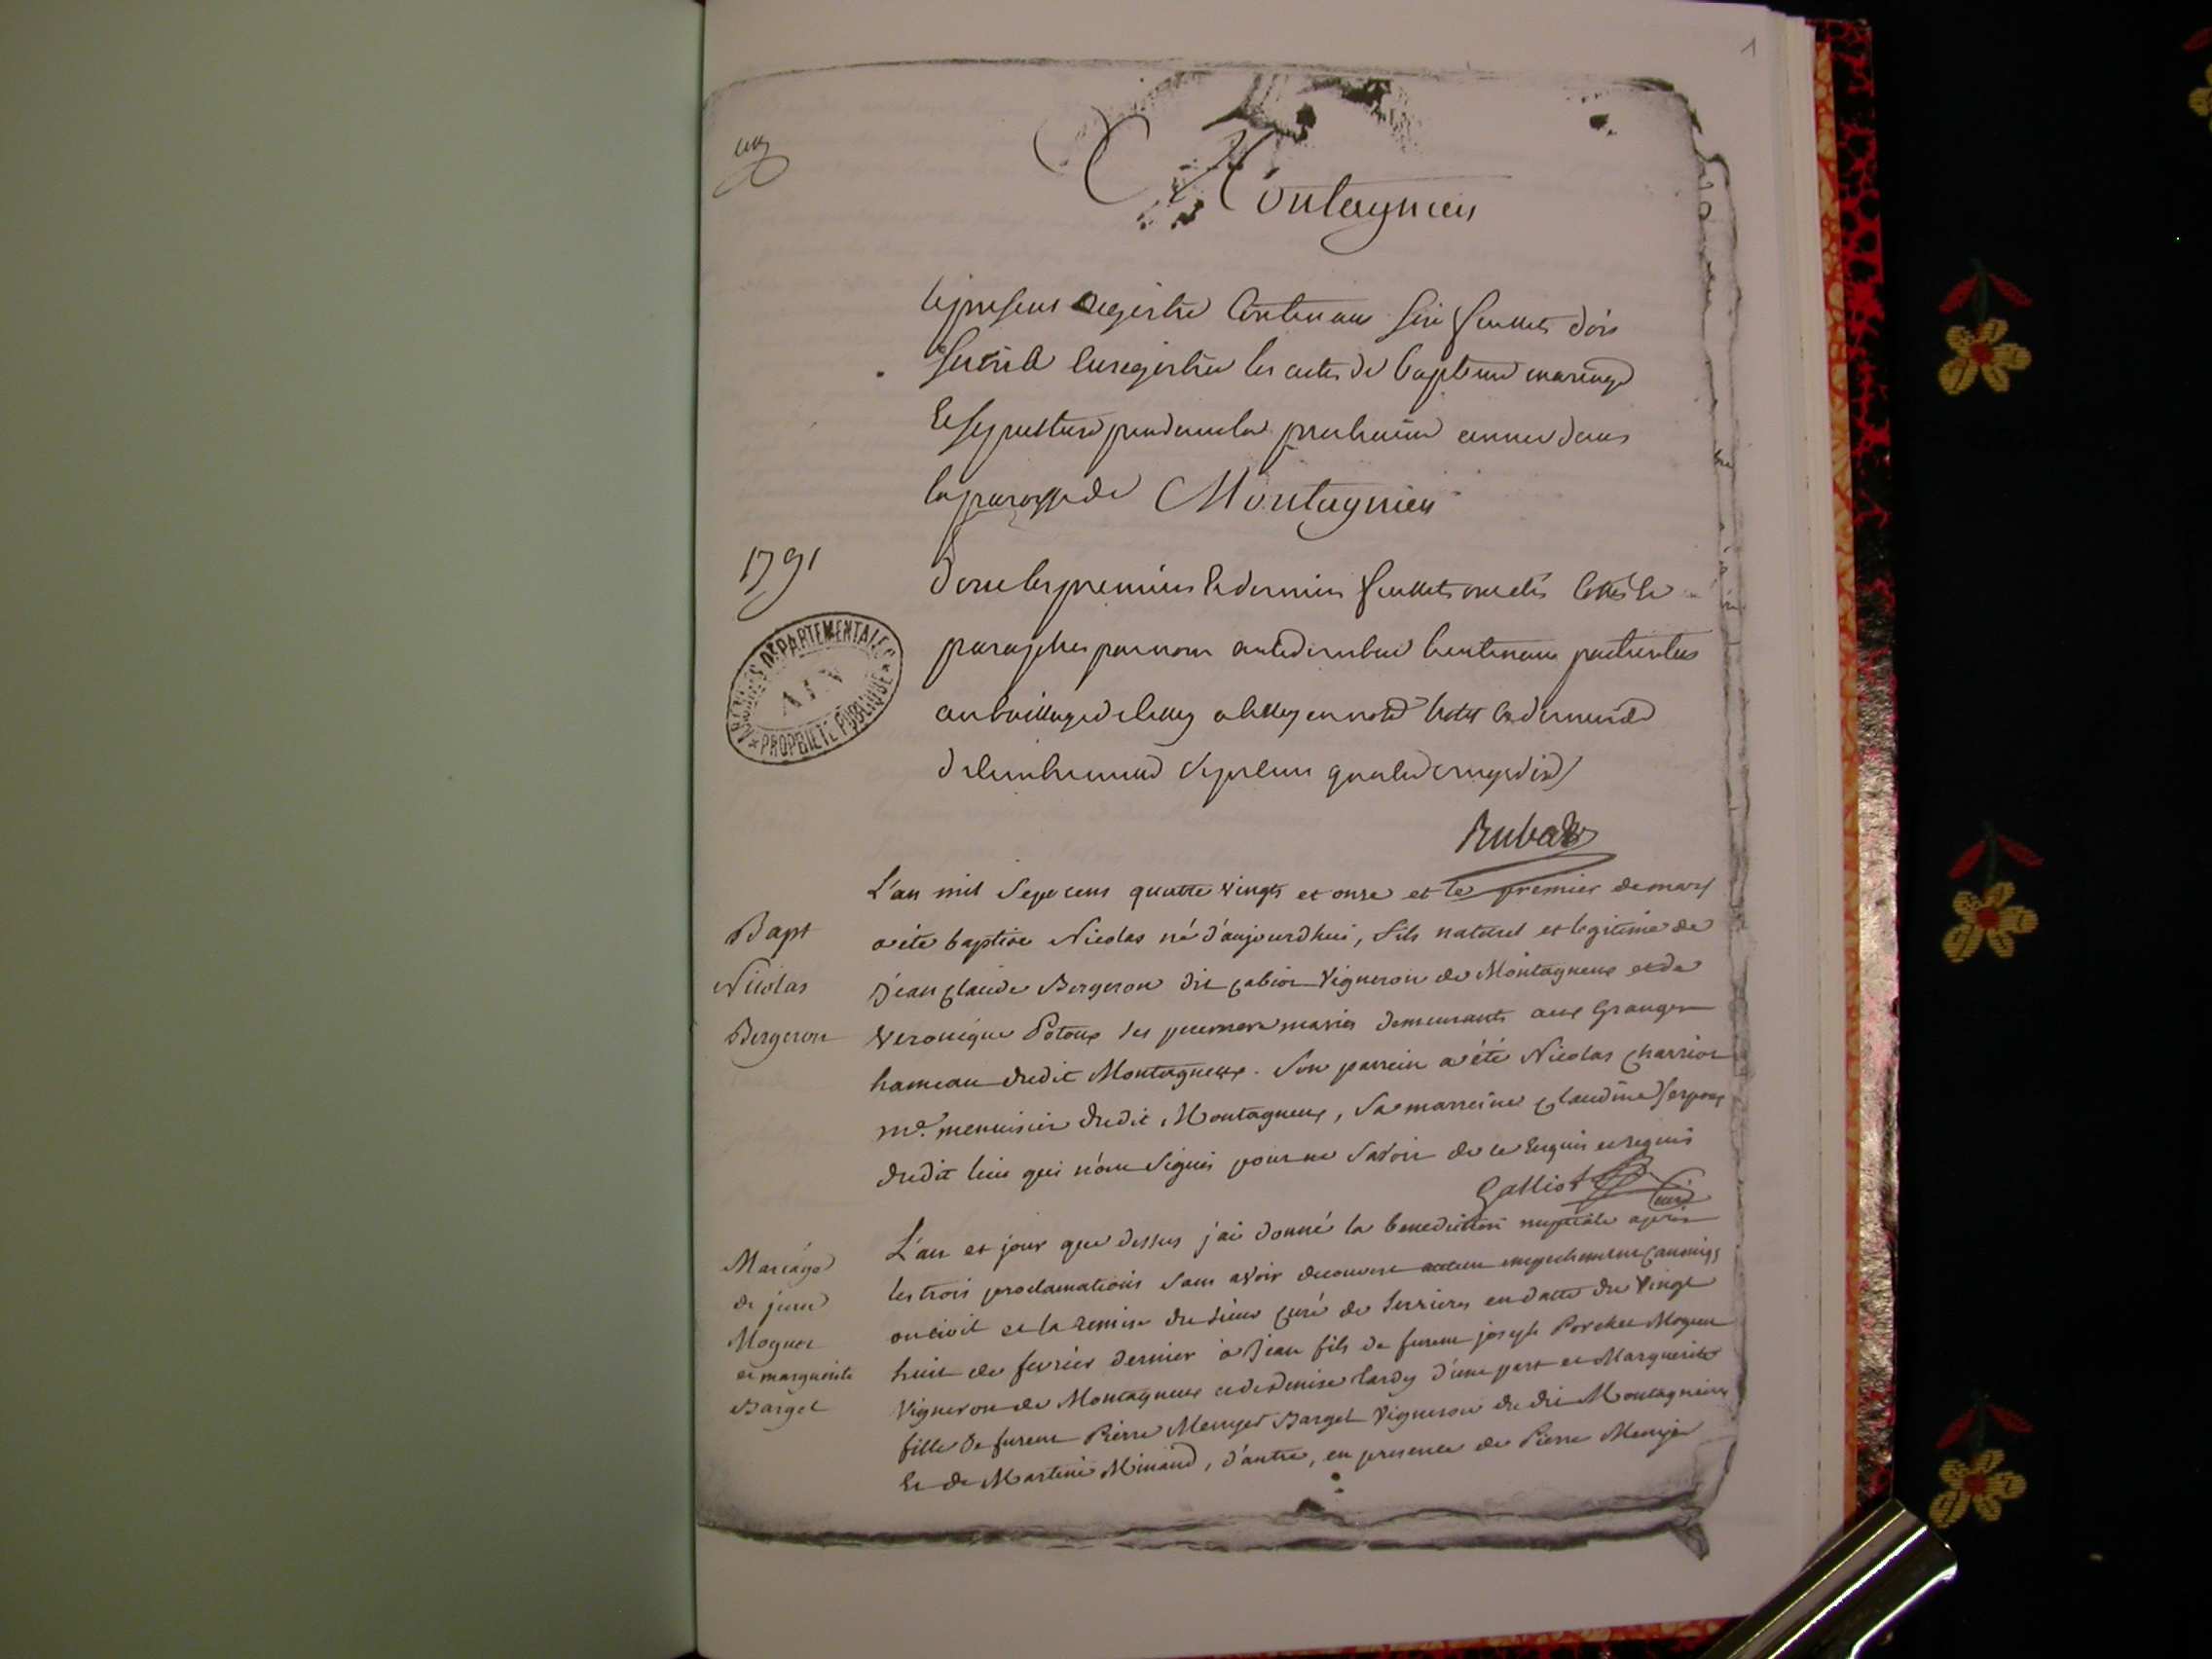 1
Montagnieu
le present Registre Contenant six feuillets doit
servir a Enregistrer les actes de bapteme mariage
Et sepulture pendant la prochaine année dans
la paroisse de Montagnieu
1791
dont les premier Et dernier feuillets ont eté Cottés Et
paraphés par nous lieutenant particulier
au bailliage de belley a belley en notre hotel le
decembre mil sept cent quatre vingt dix
ARCHIVES DÉPARTEMENTALES
AIN
PROPRIÉTÉ PUBLIQUE
Rubat
L'an mil sept cent quatre vingts et onze et le premier de mars
Bapt
a été baptise Nicolas né d'aujourdhui, fils naturel et legitime de
Nicolas
Jean Claude Bergeron dit Vigneron de Montagneux et de
Bergeron
Veronique Potoux ses mariés demeurants aux Granges
hameau dudit Montagneux. Son parrein a été Nicolas Charriot
me. menuisier dudit Montagneux, sa marreine Claudine
dudit lieu qui n'ont signés pour ne savoir de ce Enquis et requis
Galliot Curé
L'an et jour que dessus j'ai donné la benediction nuptiale après
Mariage
les trois proclamations sans avoir decouvert aucun empechement canonique
de jean
ou civil et la remise du sieur Curé de Serrieres en datte du vingt
Moguet
huit de fevrier dernier à Jean fils de furent joseph
et marguerite
Vigneron de Montagneux et de Denise Lardy d'une part et Marguerite
Barget
fille de furent Pierre Barget Vigneron du dit Montagnieu
Et de Martine Minand, d'autre, en presence de Pierre